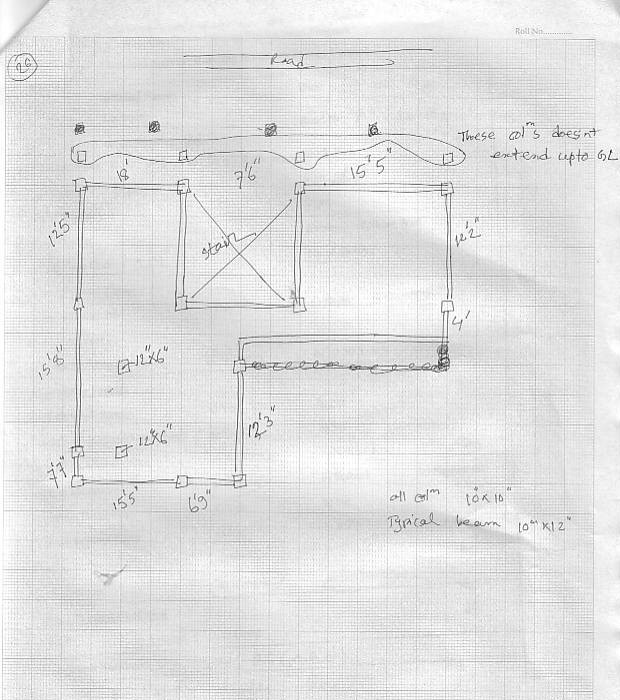 Roll No.............
26
Road
These col^m's doesnt
extend upto GL
18'
7'6"
15'5"
12'5"
stair
12'2"
4'
15'8"
12"x6"
12"x6"
12'3"
7'7"
15'5"
6'9"
all col^m 10"x10"
Typical beam 10"x12"